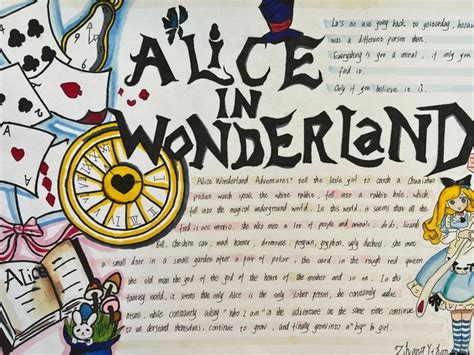 ALiCE
IN
WONDERLaND
It's no use going back to yesterday, because
was a different person then.
Everything's got a moral, if only you
find it.
Only if you believe it is.
Alice Wonderland Adventures" tell the little girl to catch a
pocket watch speak the white rabbit, fell into a rabbit hole, which
fell into the magical underground world. In this world, it seems that all the
find is occ, she also met a lot of people and animals: dodo, lizard
bill, cheshire cat, mad hatter, dormouse, gryphon, ugly duchess. she more
a small door in a small garden after a pair of poker, the card in the rough red queen
the old man the god of the god of the heart of the mother and so on. In this
fantasy world, it seems that only Alice is the only sober person, she constantly
means, while constantly asking "who I am" in the adventure at the same time continue
to understand themselves, continue to grow, and finally grow into a "big" girl.
ALiCE
A
A
Zhang Yi